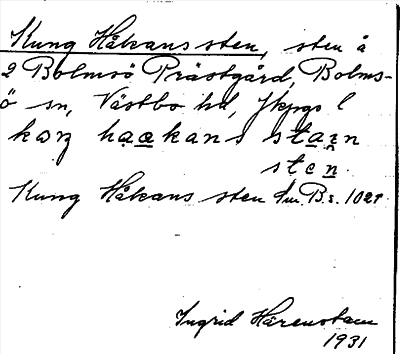 Kung Håkans sten, sten å
2 Bolmsö Prästgård, Bolms-
ö sn, Västbo hd, Jkpgs l
kaŋ hakans stan
sten
Kung Håkans sten Sm. B.s. 102
Ingrid Härenstam
1931